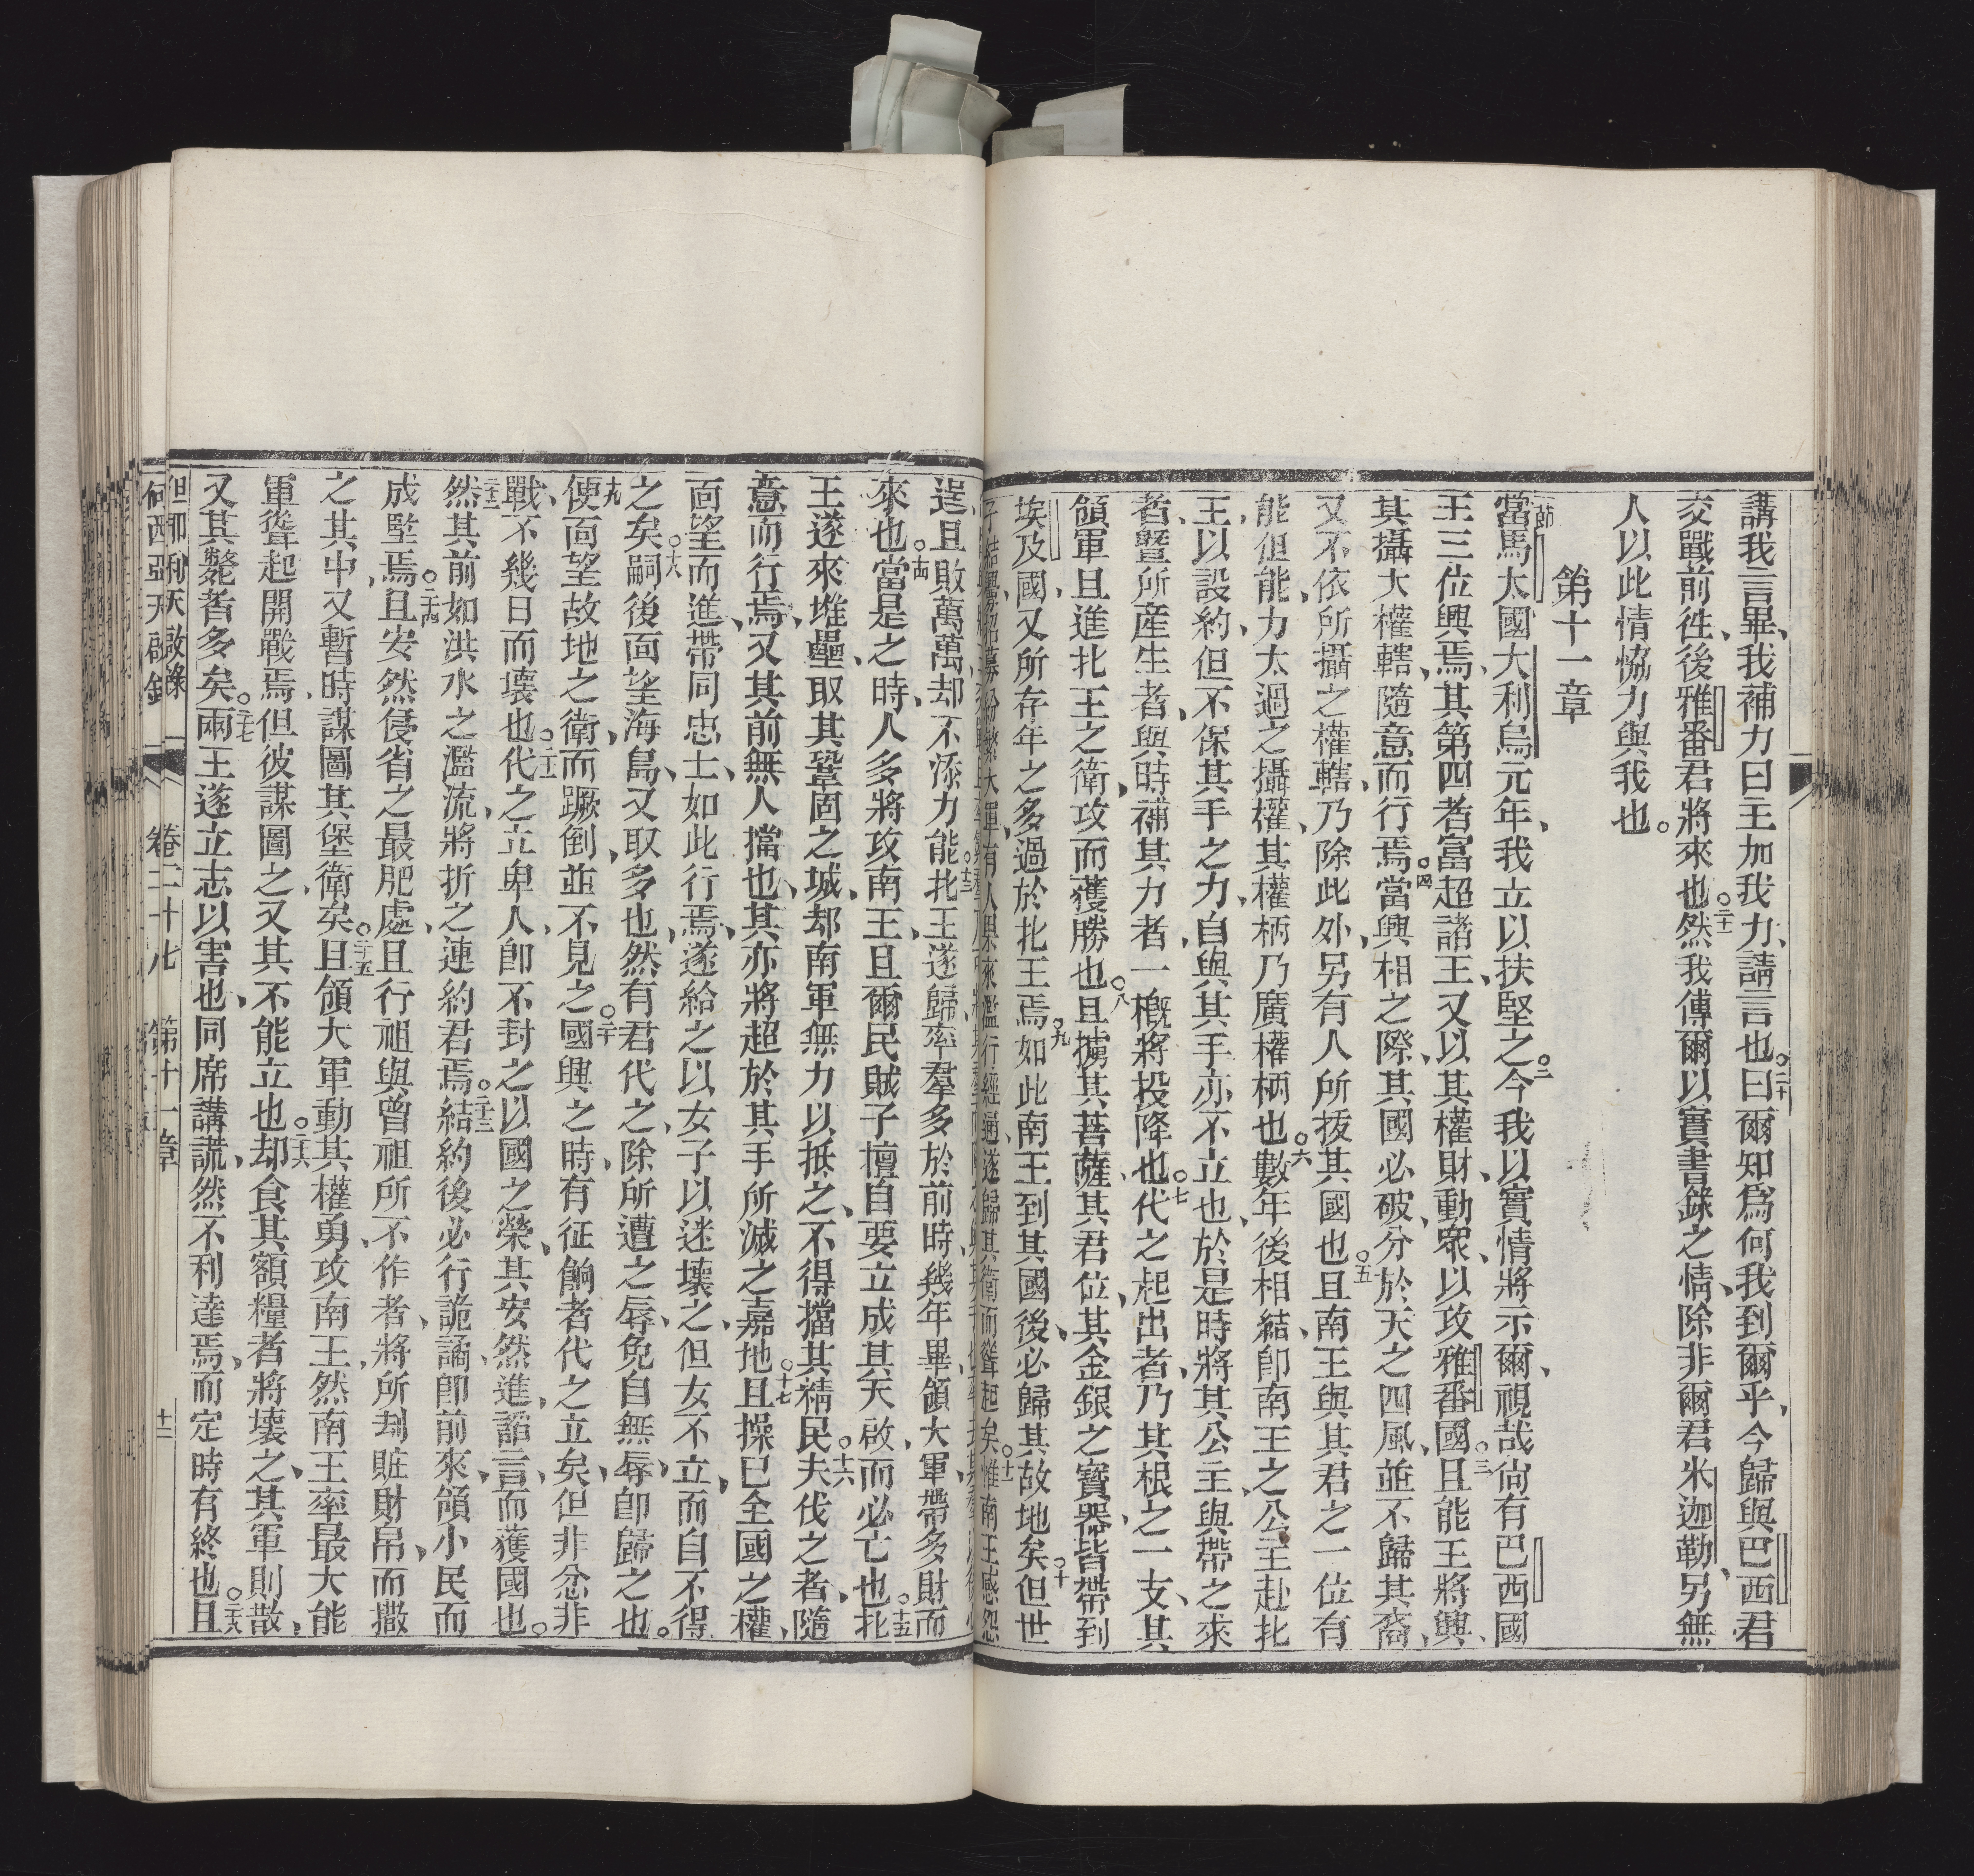 講我言畢、我補力曰王加我力、請言也。二十曰爾知為何我到爾乎、今歸與巴西君
交戰前徃、後雅番君將來也。二十一然我傳爾以實書錄之情、除非爾君米迦勒、另無
人以此情恊力與我也。
第十一章
一節當馬太國大利烏元年、我立以扶堅之。二今我以實情將示爾、視哉尙有巴西國
王三位興焉、其第四者富超諸王、又以其權財、動衆、以攻雅番國。三且能王將興、
其攝大權轄、隨意而行焉。四當興相之際、其國必破、分於天之四風、並不歸其裔、
又不依所攝之權轄、乃除此外、另有人所拔其國也。五且南王與其君之一位有
能、但能、力太過之攝權、其權柄乃廣權柄也。六數年後相結、卽南王之公主赴北
王、以設約、但不保其手之力、自與其手亦不立也、於是時將其公主、與帶之來
者、曁所產生者、與時補其力者、一概將投降也。七代之起出者、乃其根之一支、其
領軍且進北王之衛、攻而獲勝也。八且擄其菩薩、其君位、其金銀之寶器、皆帶到
埃及國、又所存年之多過於北王焉。九如此南王到其國、後必歸其故地矣。十但世
子結釁、招募紛繁大軍、有人果來濫行經過、遂歸其衛而聳起矣。十一惟南王感怨
逞、且敗萬萬、却不添力能。十三北王遂歸、率羣多於前時、幾年畢、領大軍、帶多財而
來也。十四當是之時、人多將攻南王、且爾民賊子擅自要立成其天啟、而必亡也。十五北
王遂來堆壘、取其鞏固之城、却南軍無力以抵之、不得擋其精民。十六夫伐之者、隨
意而行焉、又其前無人擋也、其亦將超於其手所滅之嘉地。十七且操已全國之權、
面望而進、帶同忠士、如此行焉、遂給之以女子以迷壞之、但女不立、而自不得
之矣。十八嗣後面望海島、又取多也、然有君代之、除所遭之辱、免自無辱、卽歸之也。
十九便面望故地之衛、而蹶倒、並不見之。二十國興之時、有征餉者代之立矣、但非忿非
戰、不幾日而壞也。二十一代之立卑人、卽不封之以國之榮、其安然進、諂言而獲國也。
二十二然其前如洪水之濫流、將折之連約君焉。二十三結約後必行詭譎、卽前來、領小民而
成堅焉。二十四且安然侵省之最肥處、且行祖與曾祖所不作者、將所刼賍財帛、而撒
之其中、又暫時謀圖其堡衛矣。二十五且領大軍動其權勇、攻南王、然南王率最大能
軍聳起開戰焉、但彼謀圖之、又其不能立也。二十六却食其額糧者將壞之、其軍則散、
又其斃者多矣。二十七兩王遂立志以害也、同席講謊、然不利達焉、而定時有終也。二十八且
但耶利天啟錄
何西亞天啟錄
卷二十七 第十一章 十二